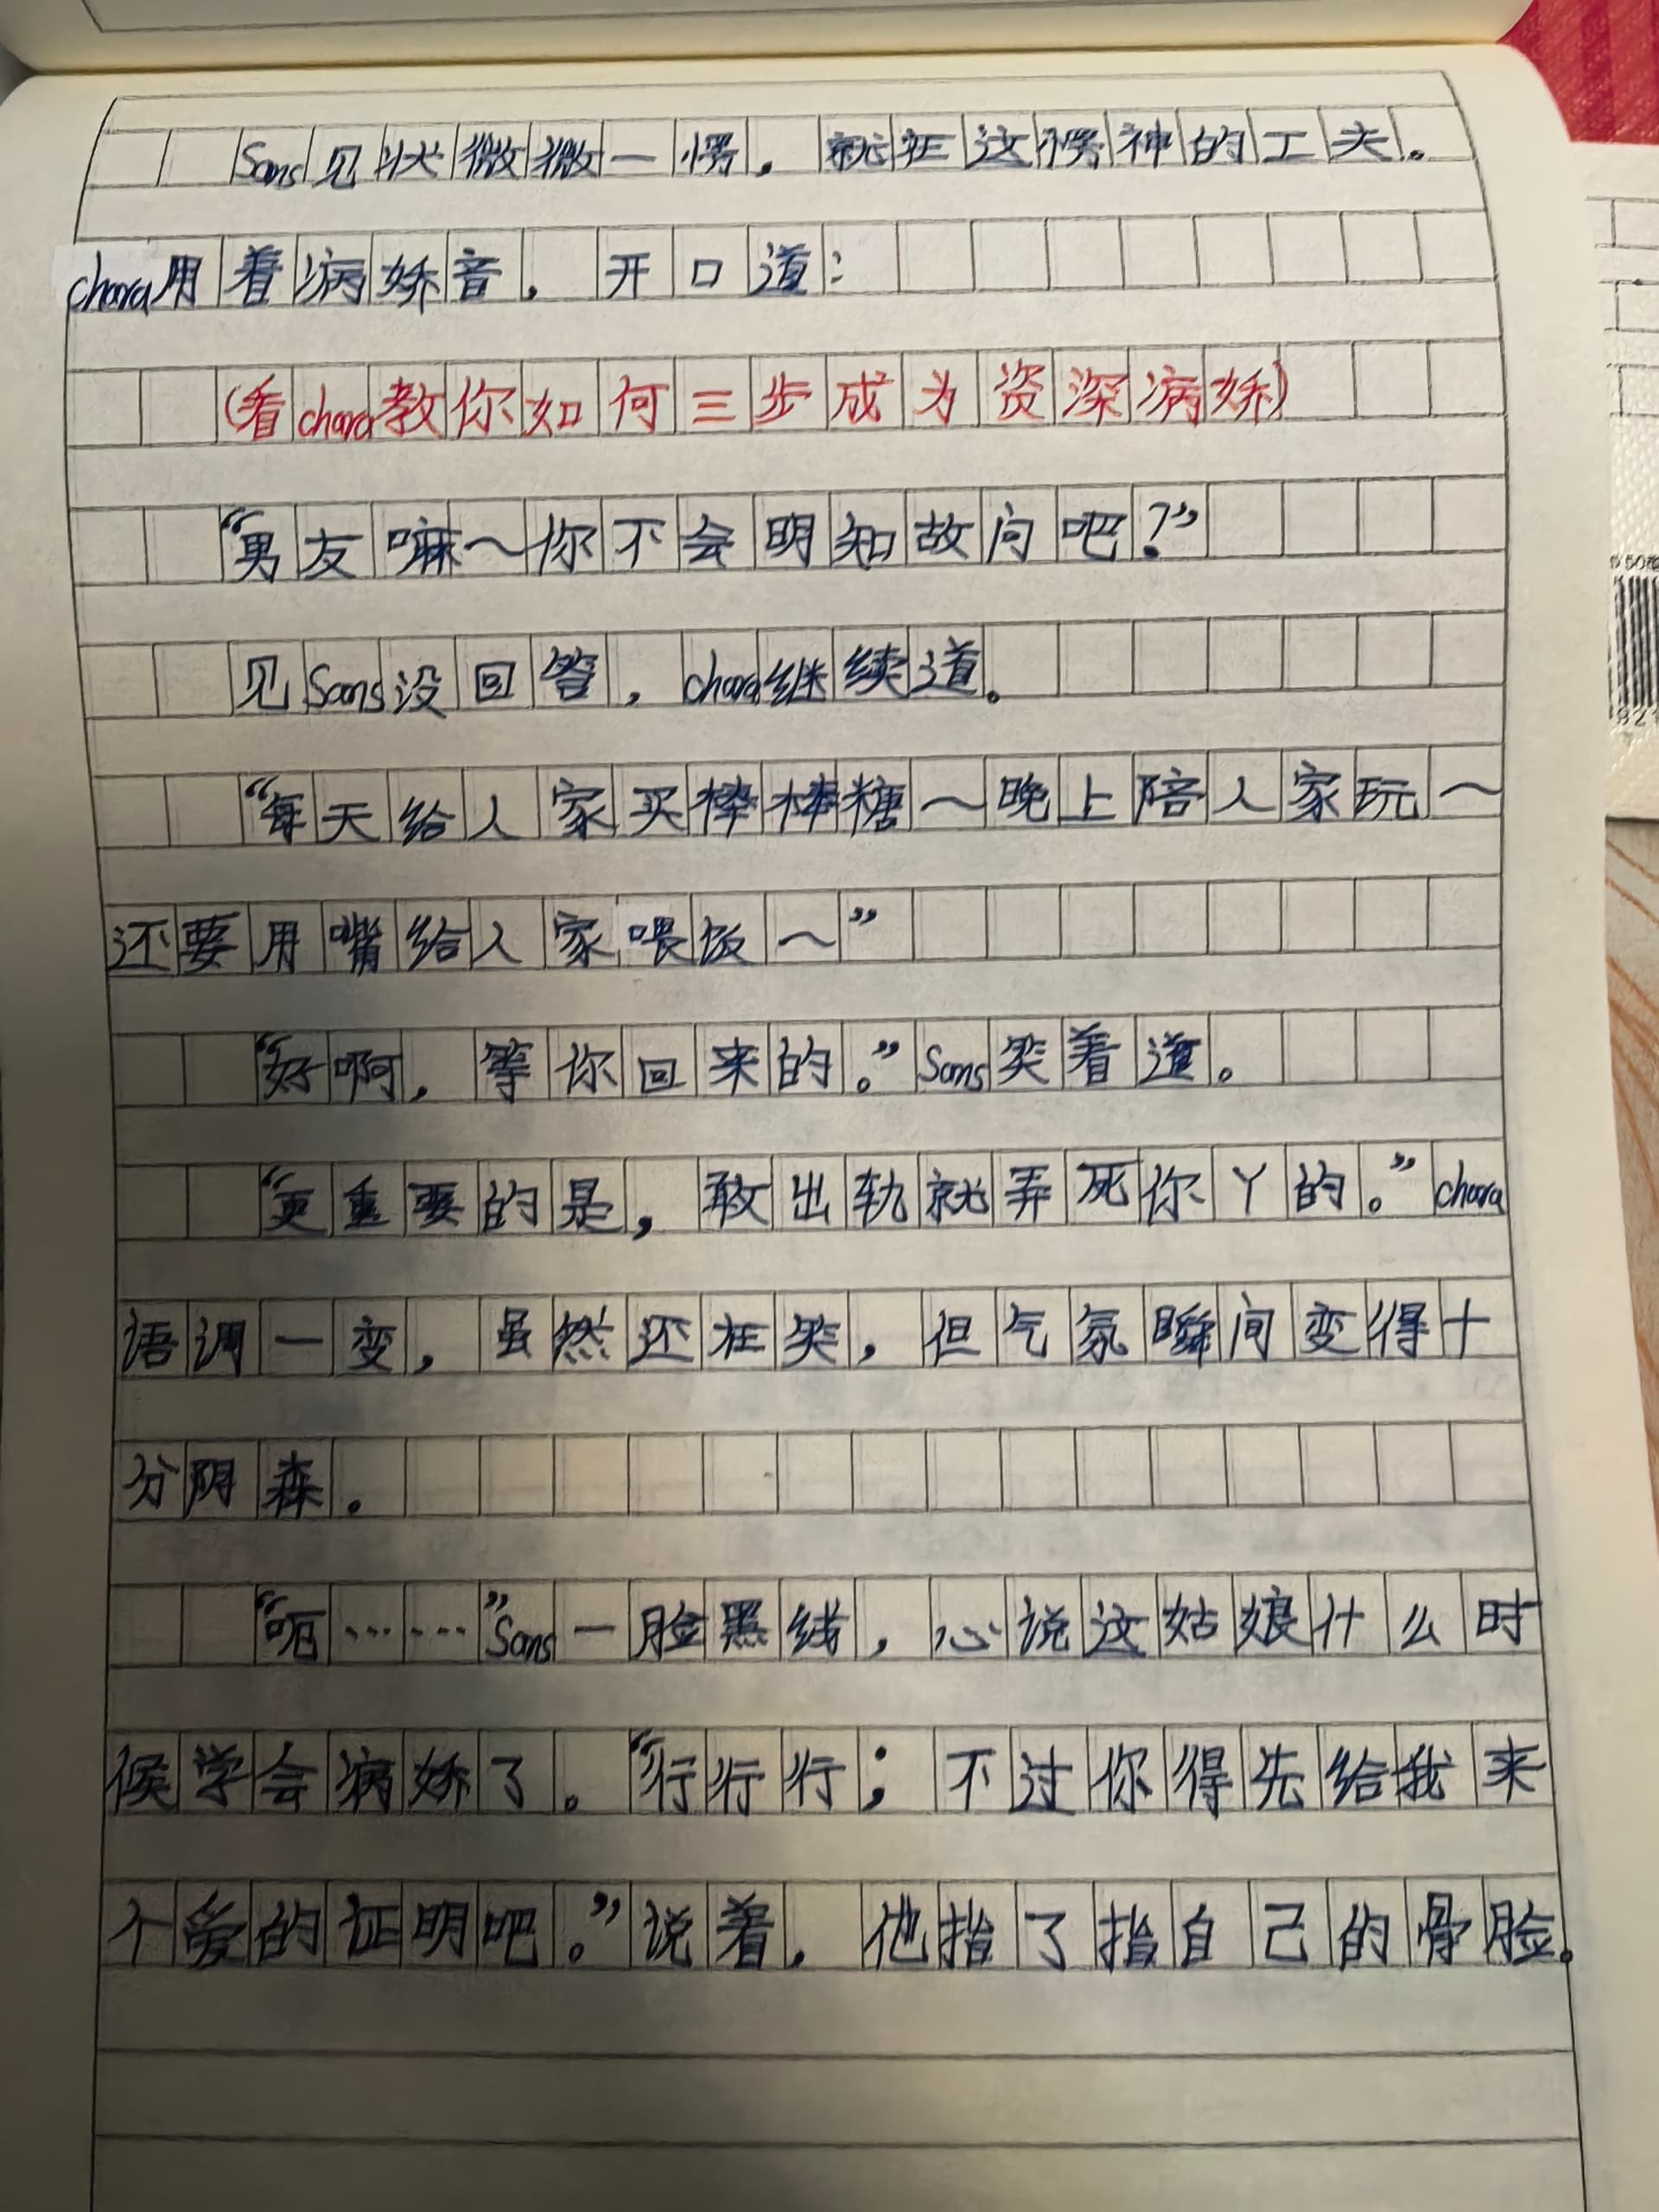 Sans见状微微一愣，就在这愣神的工夫。
chara用着病娇音，开口道：
（看chara教你如何三步成为资深病娇）
“男友嘛～你不会明知故问吧？”
见Sans没回答，chara继续道。
“每天给人家买棒棒糖～晚上陪人家玩～
还要用嘴给人家喂饭～”
“好啊，等你回来的。”Sans笑着道。
“更重要的是，敢出轨就弄死你丫的。”chara
语调一变，虽然还在笑，但气氛瞬间变得十
分阴森。
“呃……”Sans一脸黑线，心说这姑娘什么时
候学会病娇了。“行行行；不过你得先给我来
个爱的证明吧。”说着，他抬了抬自己的骨脸。